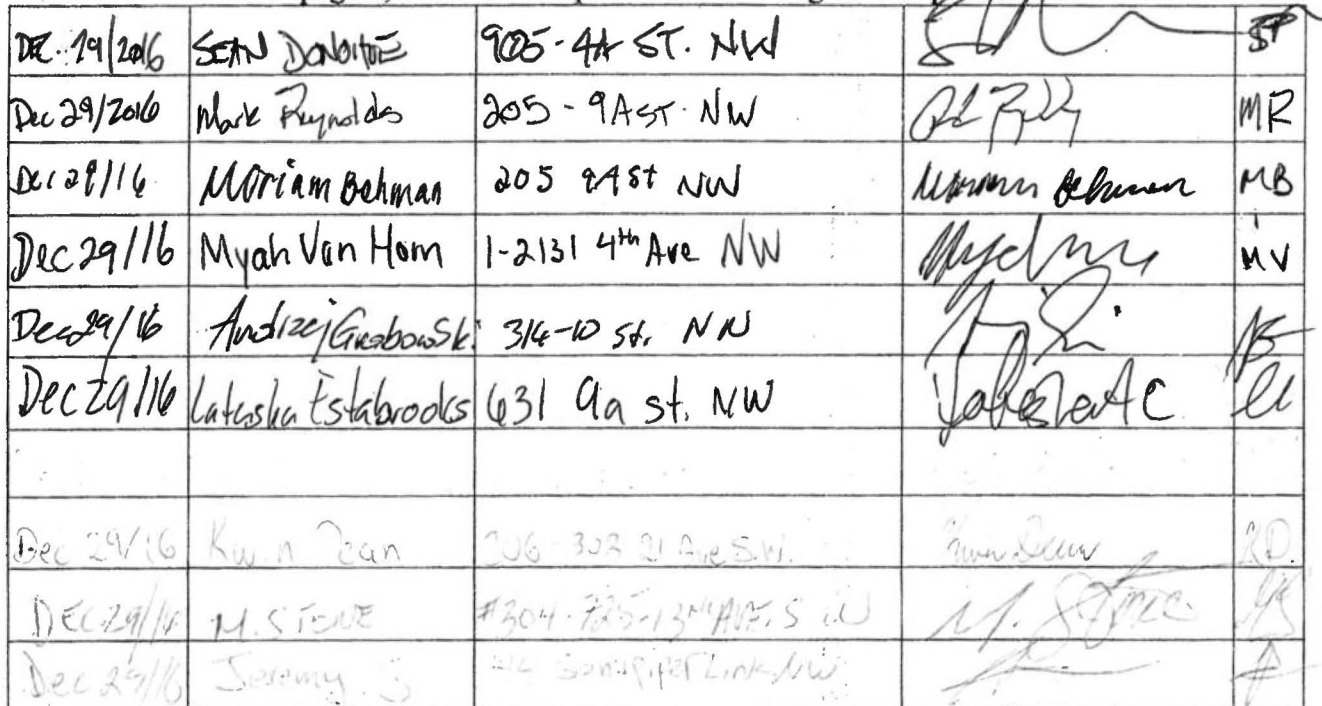 DEC. 29/2016 SEAN DONOHOE 905-4A ST. NW
Dec 29/2016 Mark Reynolds 205 - 9A ST. NW MR
Dec 29/16 Moriam Behman 205 9A St NW Behman MB
Dec 29/16 Myah Van Horn 1-2131 4th Ave NW MV
Dec 29/16 Andrzej Grabowski 314-10 St. NW
Dec 29/16 Latasha Estabrooks 631 9a st. NW
Dec 29/16 Dean 306-302 21 Ave S.W.
DEC 29/16 M. STONE #304-725-13th AVE. S.W M. Stone MS
Dec 29/16 Jeremy Link NW